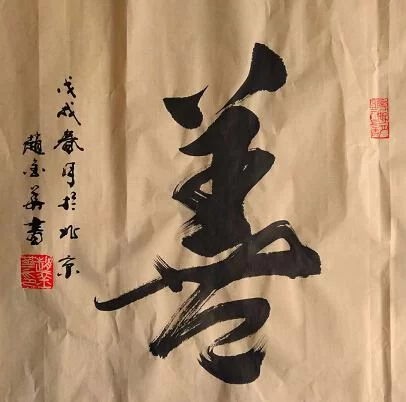 善
戊戌春月於北京
趙金華書